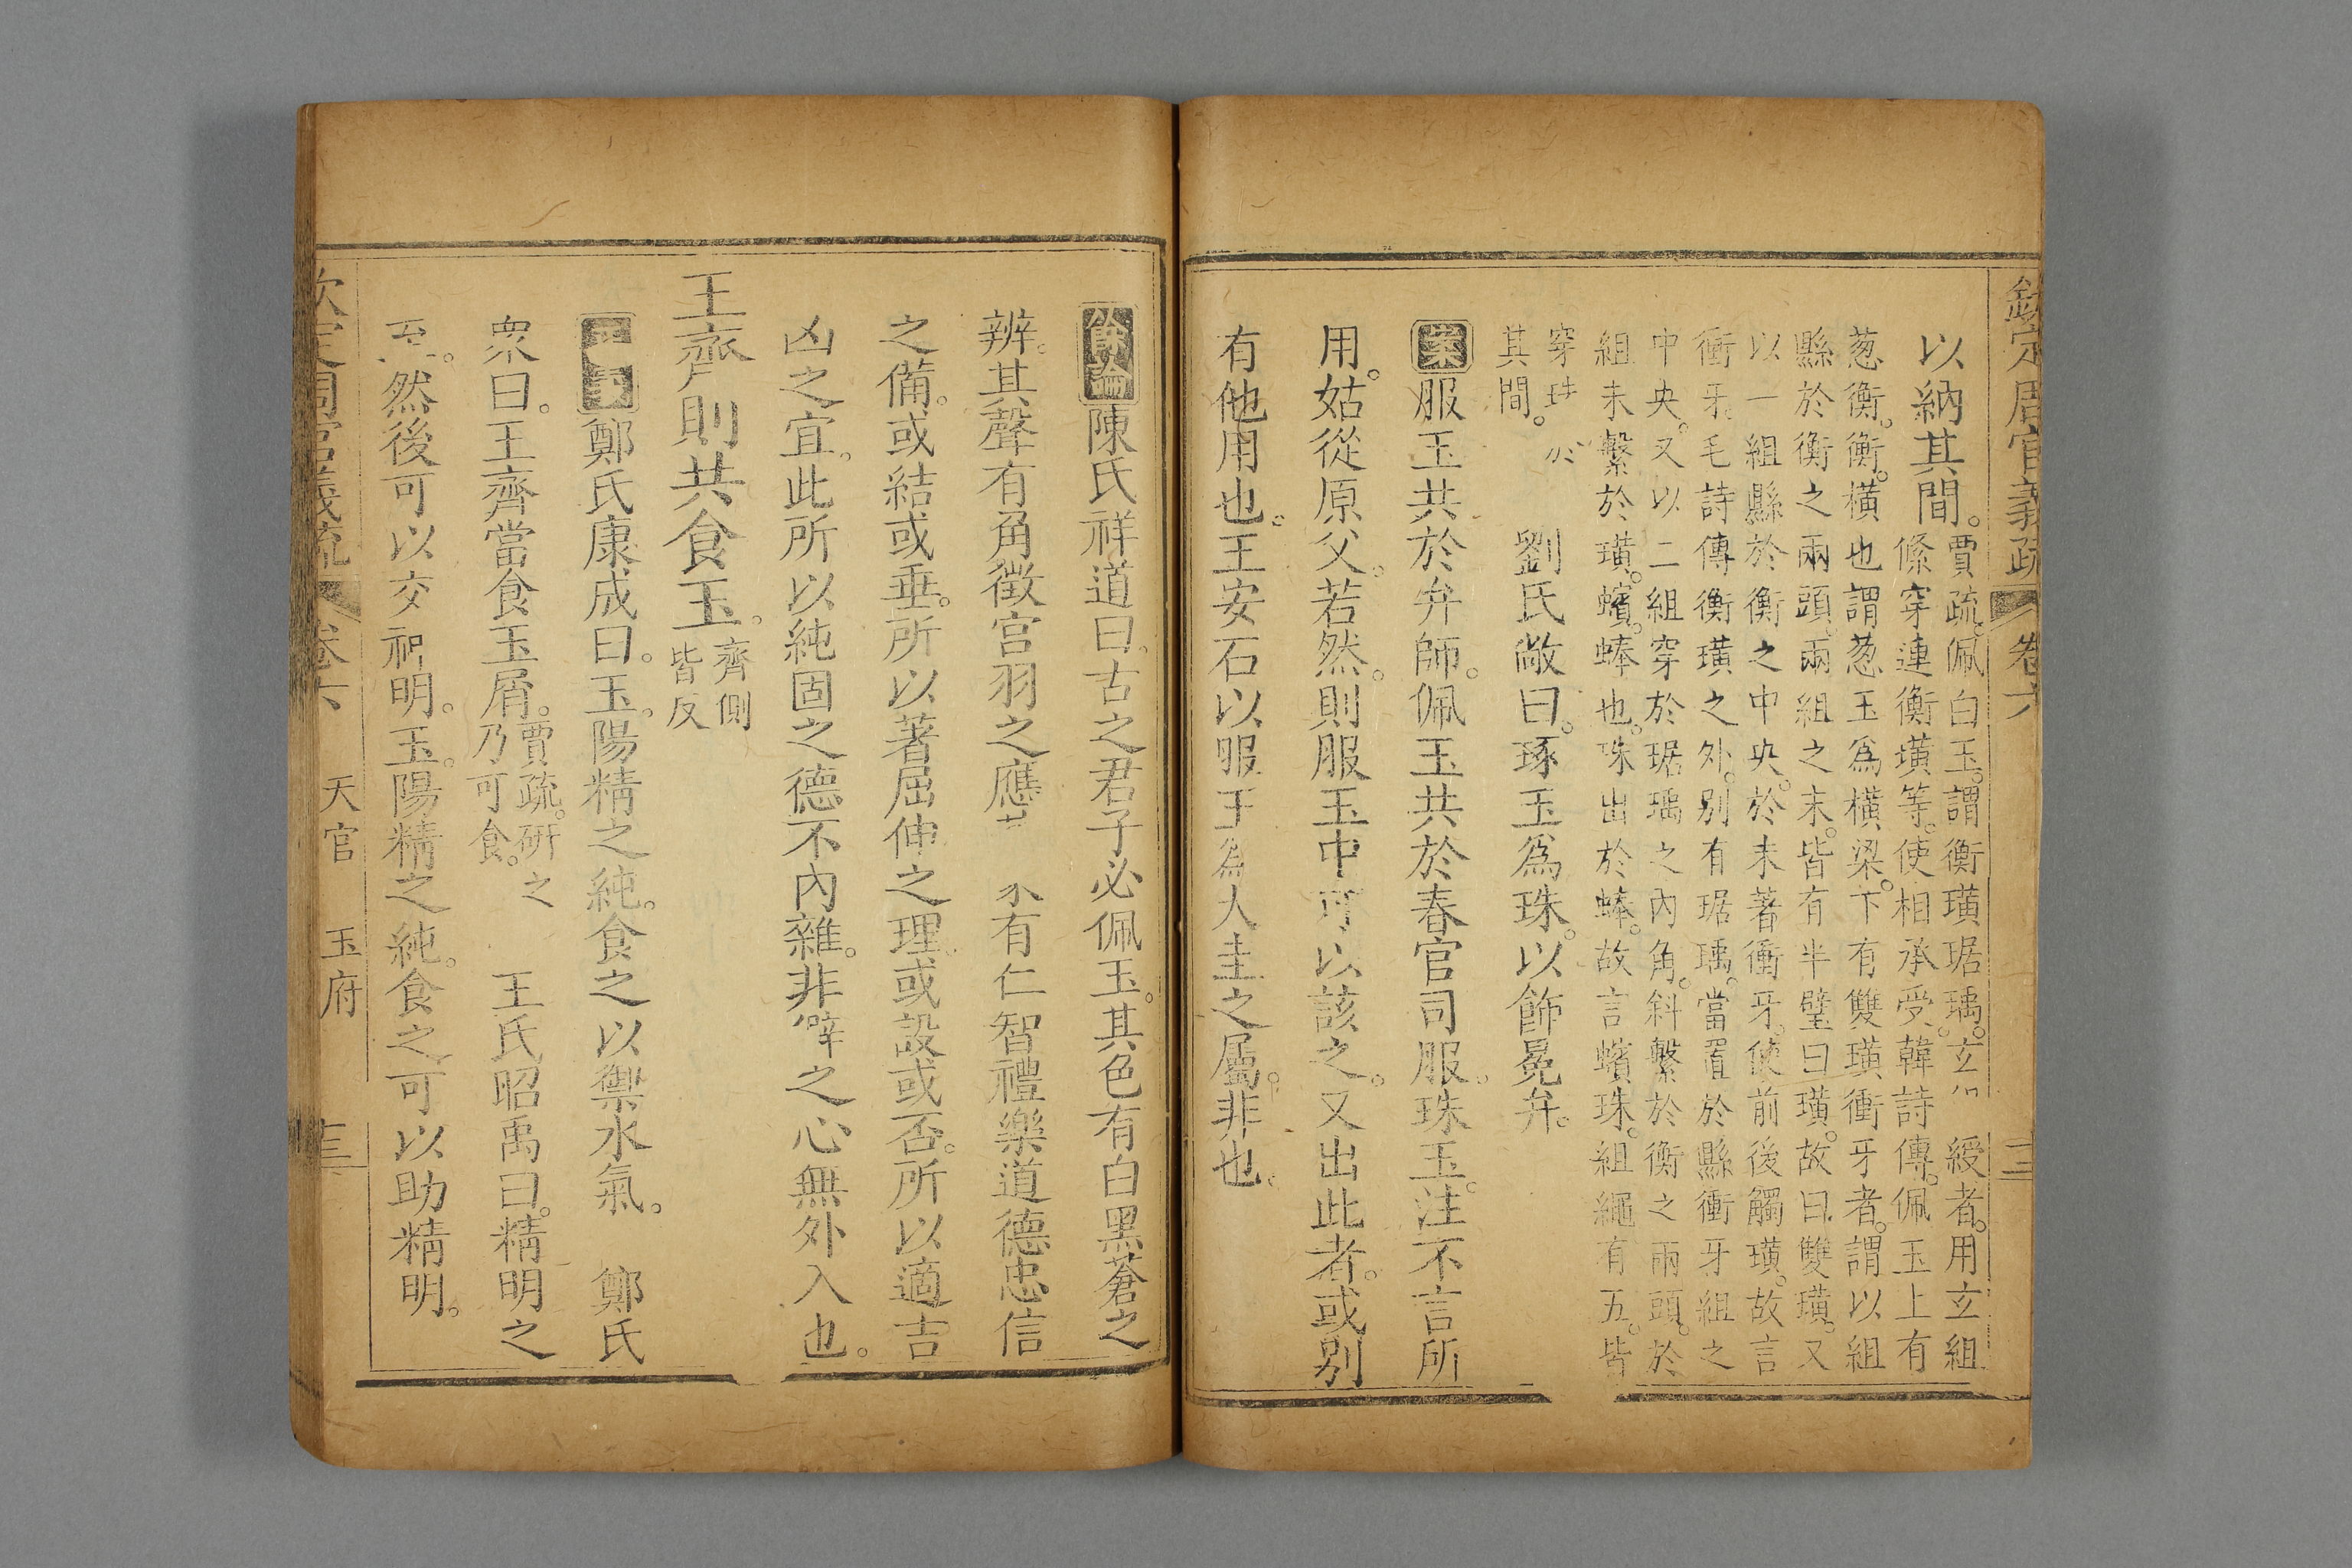 欽定周官義疏 卷六
以納其間。賈疏。佩白玉。謂衡璜琚瑀。玄 綬者。用玄組
絛穿連衡璜等。使相承受。韓詩傳。佩玉上有
葱衡。衡。橫也謂葱玉爲橫梁。下有雙璜衝牙者。謂以組
縣於衡之兩頭。兩組之末。皆有半璧曰璜。故曰雙璜。又
以一組縣於衡之中央。於末著衝牙。使前後觸璜。故言
衝牙。毛詩傳衡璜之外。別有琚瑀。當置於縣衝牙組之
中央。又以二組穿於琚瑀之內角。斜繫於衡之兩頭。於
組末繫於璜。蠙。蜯也。珠出於蜯。故言蠙珠。組繩有五。皆
穿珠於
其間。 劉氏敞曰。琢玉爲珠。以飾冕弁。
案服玉共於弁師。佩玉共於春官司服。珠玉。注不言所
用。姑從原父。若然。則服玉中可以該之。又出此者。或別
有他用也。王安石以服玉爲大圭之屬。非也。
餘論陳氏祥道曰。古之君子必佩玉。其色有白黑蒼之
辨。其聲有角徵宫羽之應 有仁智禮樂道德忠信
之備。或結或垂。所以著屈伸之理。或設或否。所以適吉
凶之宜。此所以純固之德不內雜。非辟之心無外入也。
王齊則共食玉。齊側
皆反
鄭氏康成曰。玉。陽精之純。食之以禦水氣。 鄭氏
衆曰。王齊當食玉屑。賈疏。硏之
乃可食。 王氏昭禹曰。精明之
至。然後可以交神明。玉。陽精之純。食之可以助精明。
欽定周官義疏 卷六 天官 玉府